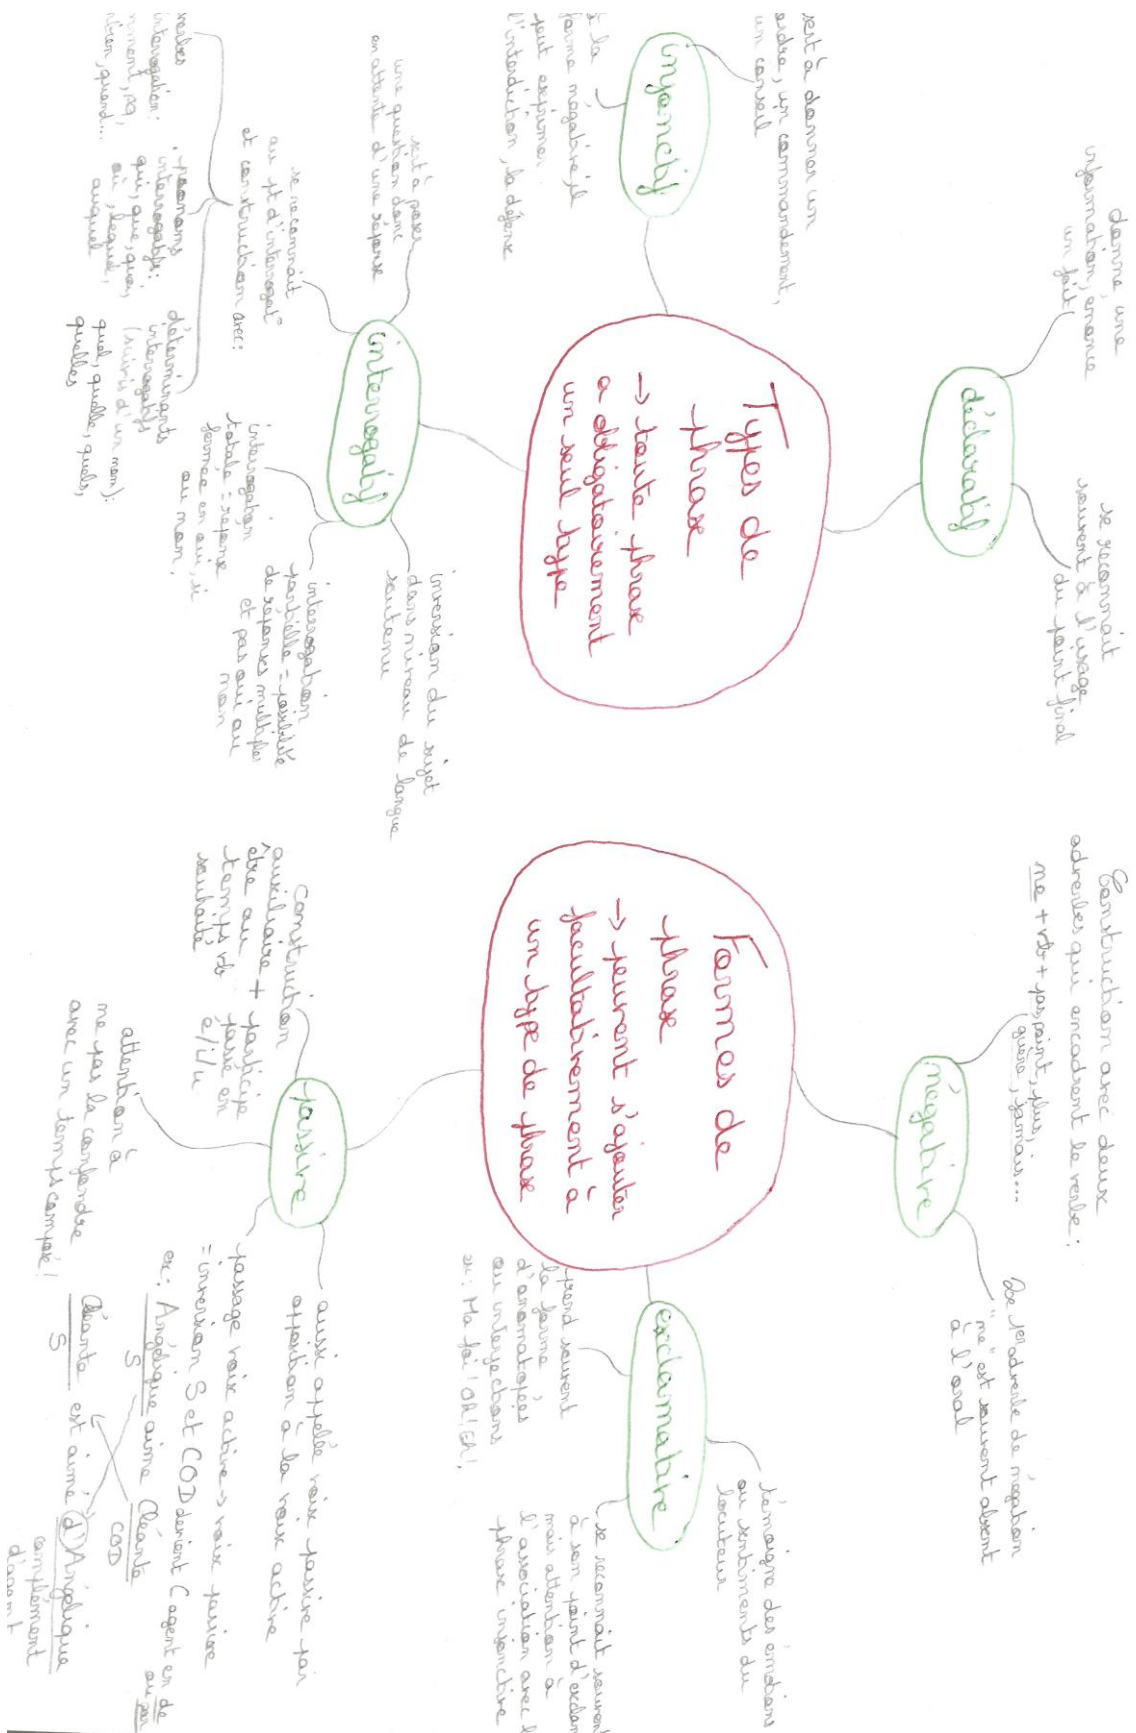 Types de
phrase
→ toute phrase
a obligatoirement
un seul type
déclaratif
donne une
information, énonce
un fait
se reconnaît
souvent à l'usage
du point final
injonctif
sert à donner un
ordre, un commandement,
un conseil
à la
forme négative, il
peut exprimer
l'interdiction, la défense
interrogatif
sert à poser
une question donc
en attente d'une réponse
se reconnaît
au pt d'interrogat°
et construction avec:
verbes
interrogation:
pq,
quand...
pronoms
interrogatifs:
qui, que, quoi,
où, lequel,
auquel
déterminants
interrogatifs
(suivis d'un nom):
quel, quelle, quels,
quelles
interrogation
totale = réponse
fermée en oui, si
ou non,
interrogation
partielle = possibilité
de réponses multiples
et pas oui ou
non
inversion du sujet
dans niveau de langue
soutenu
Formes de
phrase
→ peuvent s'ajouter
facultativement à
un type de phrase
négative
Construction avec deux
adverbes qui encadrent le verbe:
ne + vb + pas, point, plus,
guère, jamais...
Le 1er adverbe de négation
"ne" est souvent absent
à l'oral
exclamative
témoigne des émotions
ou sentiments du
locuteur
se reconnaît souvent
à son point d'exclam
mais attention à
l'association avec l
phrase injonctive
prend souvent
la forme
d'onomatopées
ou interjections
ex: Ma foi! Oh! Eh!
passive
Construction
auxiliaire + participe
être au passé en
temps vb é/i/u
souhaité
attention à
ne pas la confondre
avec un temps composé!
aussi appelée voix passive par
opposition à la voix active
passage voix active → voix passive
= inversion S et COD devient C agent en de
ou par
ex: Angélique aime Cléante
S COD
Cléante est aimé d'Angélique
S complément
d'agent